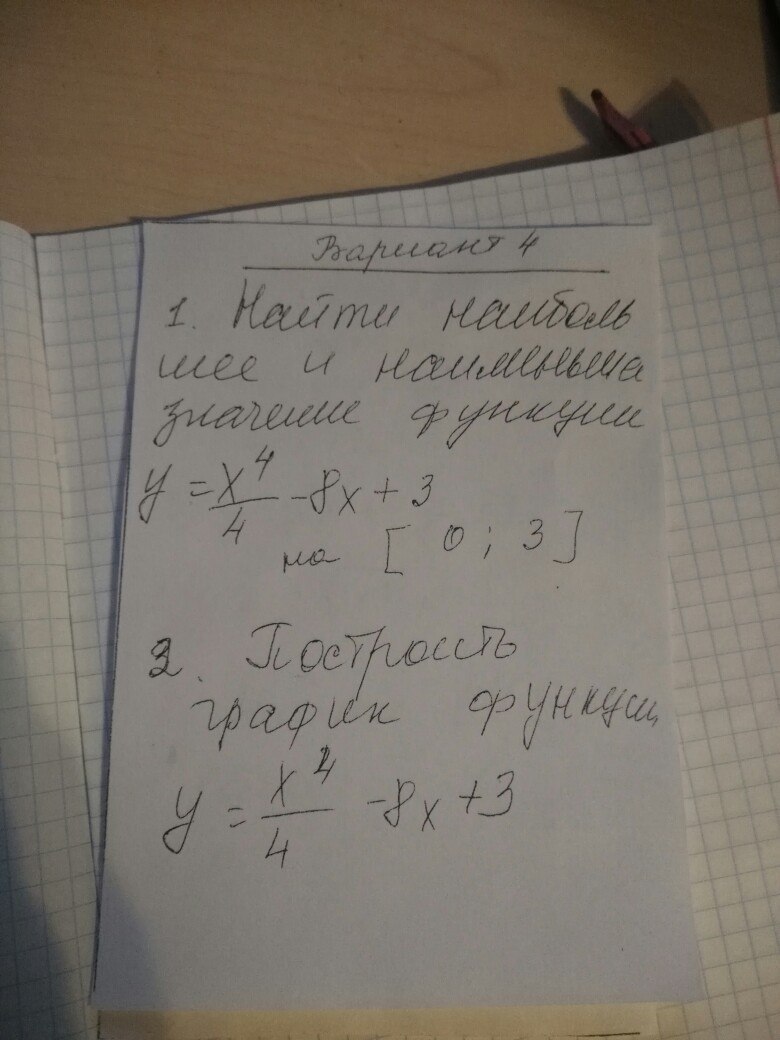 Вариант 4
1. Найти наиболь
шее и наименьше
значение функции
y = x^4/4 - 8x + 3
на [ 0 ; 3 ]
2. Построить
график функции
y = x^4/4 - 8x + 3